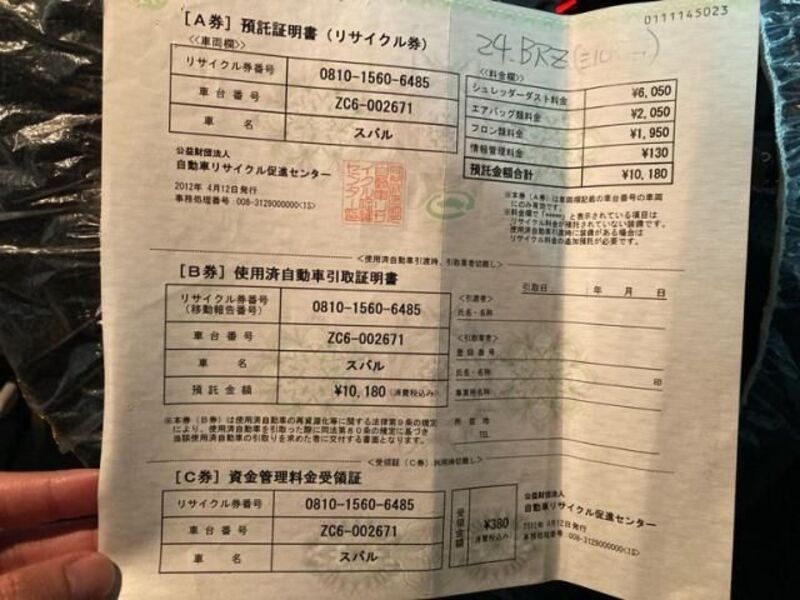 0111145023
[A券] 預託証明書(リサイクル券)
24.BRZ
<<車両欄>>
リサイクル券番号 0810-1560-6485
車台番号 ZC6-002671
車名 スバル
公益財団法人
自動車リサイクル促進センター
2012年 4月12日発行
事務処理番号:008-3129000000<1S>
<<料金欄>>
シュレッダーダスト料金 ¥6,050
エアバッグ類料金 ¥2,050
フロン類料金 ¥1,950
情報管理料金 ¥130
預託金額合計 ¥10,180
※本券(A券)は車両欄記載の車台番号の車両
にのみ有効です。
※料金欄で「****」と表示されている項目は
リサイクル料金が預託されていない装備です。
使用済自動車引渡時に装備がある場合は
リサイクル料金の追加預託が必要です。
<使用済自動車引渡時、引取業者切離し>
[B券] 使用済自動車引取証明書
リサイクル券番号
(移動報告番号) 0810-1560-6485
車台番号 ZC6-002671
車名 スバル
預託金額 ¥10,180(消費税込み)
引取日 年 月 日
<引渡者>
氏名・名称
<引取業者>
登録番号
氏名・名称 印
事業所名称
所在地
TEL
※本券(B券)は使用済自動車の再資源化等に関する法律第9条の規定
により、使用済自動車を引取った際に同法第80条の規定に基づき
当該使用済自動車の引取りを求めた者に交付する書面となります。
<受領証(C券)利用時切離し>
[C券] 資金管理料金受領証
リサイクル券番号 0810-1560-6485
車台番号 ZC6-002671
車名 スバル
受領金額 ¥380
消費税込み
公益財団法人
自動車リサイクル促進センター
2012年 4月12日発行
事務処理番号:008-3129000000<1S>